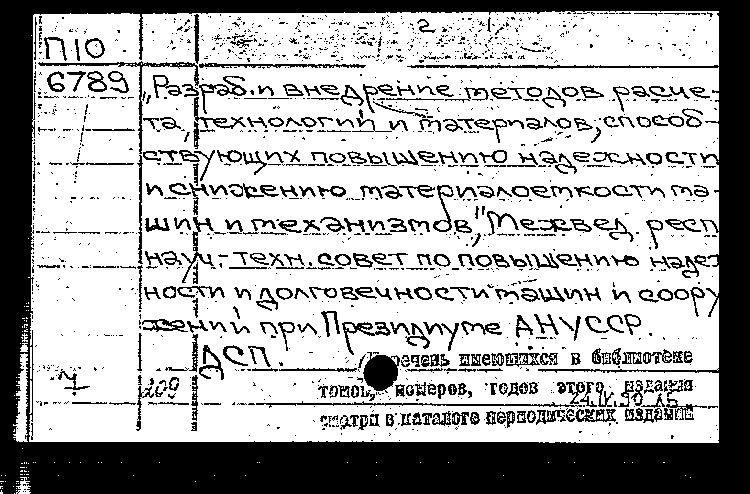 2
П10
6789
„Разраб. и внедрение методов расче-
та, технологий и материалов, способ-
ствующих повышению надежности
и снижению материалоемкости ма-
шин и механизмов", Межвед. респ
науч.-техн. совет по повышению надеж
ности и долговечности машин и соору
жений при Президиуме АН УССР.
ДСП.
(Перечень имеющихся в библиотеке
209
томов, номеров, годов этого издания
24.IV.90
смотри в каталоге периодических изданий